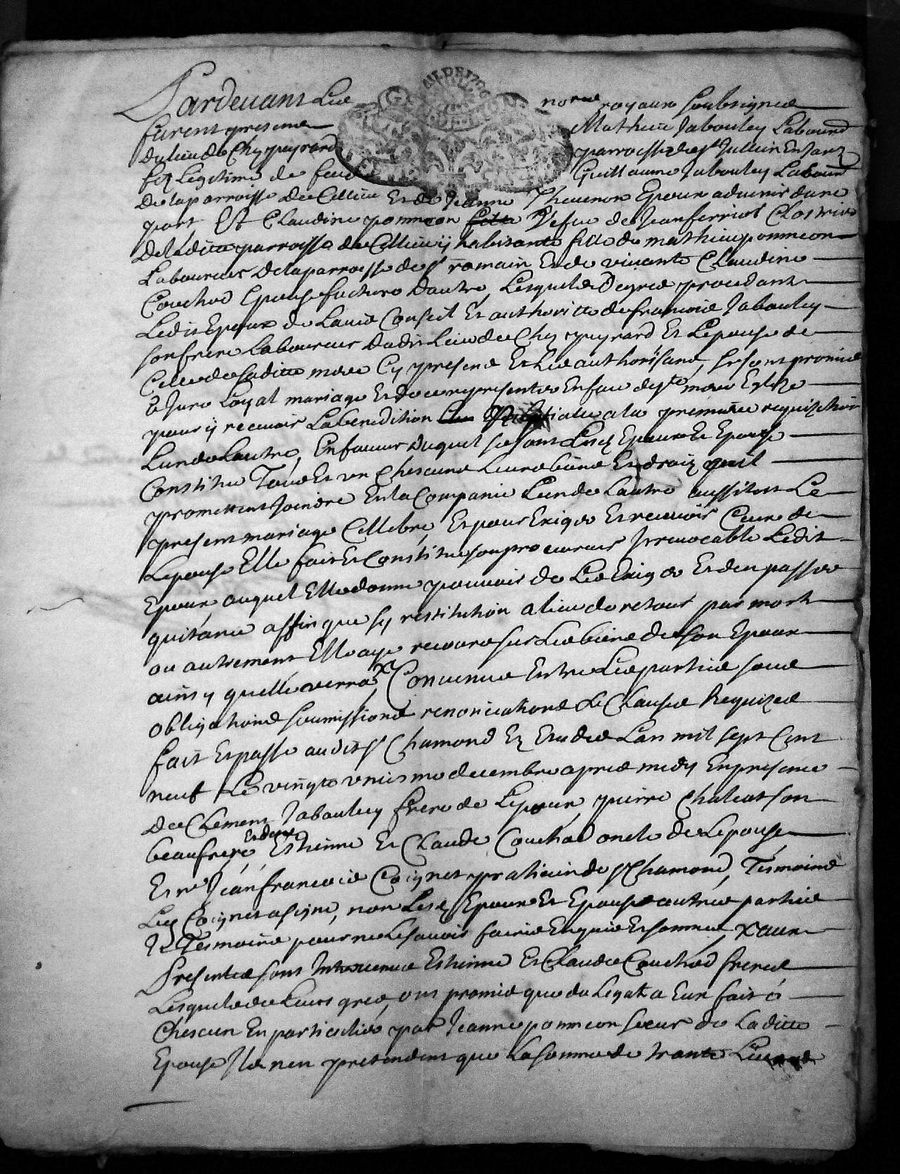 Pardevant Les no.res royaux soubsignes
furent presens Mathieu Jabouley Labour.
du lieu de Chey puyrard parroisse de st Jullien En Jarz
fils Legitime de feu Guillaume Jabouley Labour.
de la parroisse de Cellieu Et de Jeanne Thevenon Epoux advenir dune
part Et Claudine ponncon Vefve de Jean ferriol
de Laditte parroisse de Cellieu y habitante fille de mathieu ponncon
Laboureur de la parroisse de st romain Et de vivante Claudine
Couchod Epouse future dautre Lesquels de gré procedant
Ledit Epoux de Lavis Conseil Et authorité de francois Jabouley
son frere Laboureur dudit Lieu de Chey puyrard Et Lepouse de
Celle de Laditte mere Cy presente Et Les authorisant, se sont promis
& Jure Loyal mariage Et de ce representer En face de ste mere Eglize
pour y recevoir La benediction nuptiale a la premiere requisition
Lun de Lautre, En faveur duquel se sont Lesd Epoux Et Epouse
Constitue Tous Et un Chescuns Leurs biens Et droiz quil
promettent joindre En la Compagnie Lun de Lautre aussitost Le
present mariage Cellebré Et pour Exiger Et recevoir Ceux de
Lepouse Elle fait Et Constitue son procureur Irrevocable Ledit
Epoux auquel Elle donne pouvoir de Les Exiger Et den passer
quitance affin que sy restitution a lieu de retour par mort
ou autrement Elle aye recours sur Les biens de son Epoux
ainsy quelle verra, Convenu Entre Les parties sous
obligations soumissions renonciations & Clauses Requizes
fait Et passé audit st Chamond Es Etudes Lan mil sept Cent
neuf Le vingte decembre apres midy En presence
de Clement Jabouley frere de Lepoux, pierre Chaleat son
beaufrere Et de Estienne Et Claude Couchod oncle de Lepouse
Et Jean francois Coignet praticien de st Chamond, Tesmoins
Led Coignet a signe, non Lesd Epoux Et Epouse autres parties
& Tesmoins pour ne Le savoir faire Enquis Et sommes,
Presentes sont Intervenus Estienne Et Claude Couchod freres
Lesquels de Leurs gres, ont promis que du Legat a Eux fait a
Chescun En particulier par Jeanne ponncon sœur de Laditte
Epouse Ils nen pretendent que La somme de trante Livres